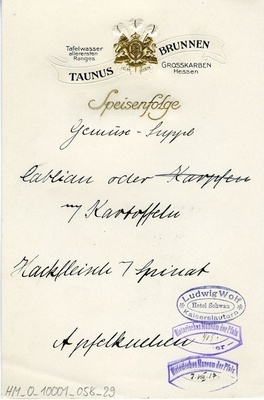 Tafelwasser
allerersten
Ranges
TAUNUS BRUNNEN
GROSSKARBEN
Hessen
Speisenfolge
Gemüse-Suppe
Cabliau oder Karpfen
m/ Kartoffeln
Hackfleisch / Spinat
Apfelkuchen
Ludwig Wolf
Hotel Schwan
Kaiserslautern
Historisches Museum der Pfalz
Historisches Museum der Pfalz
HM_0_10001_058_29